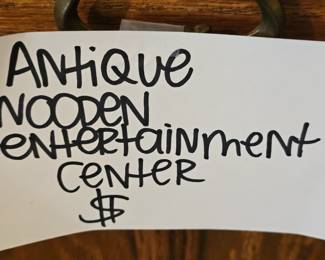 Antique
Wooden
entertainment
Center
$